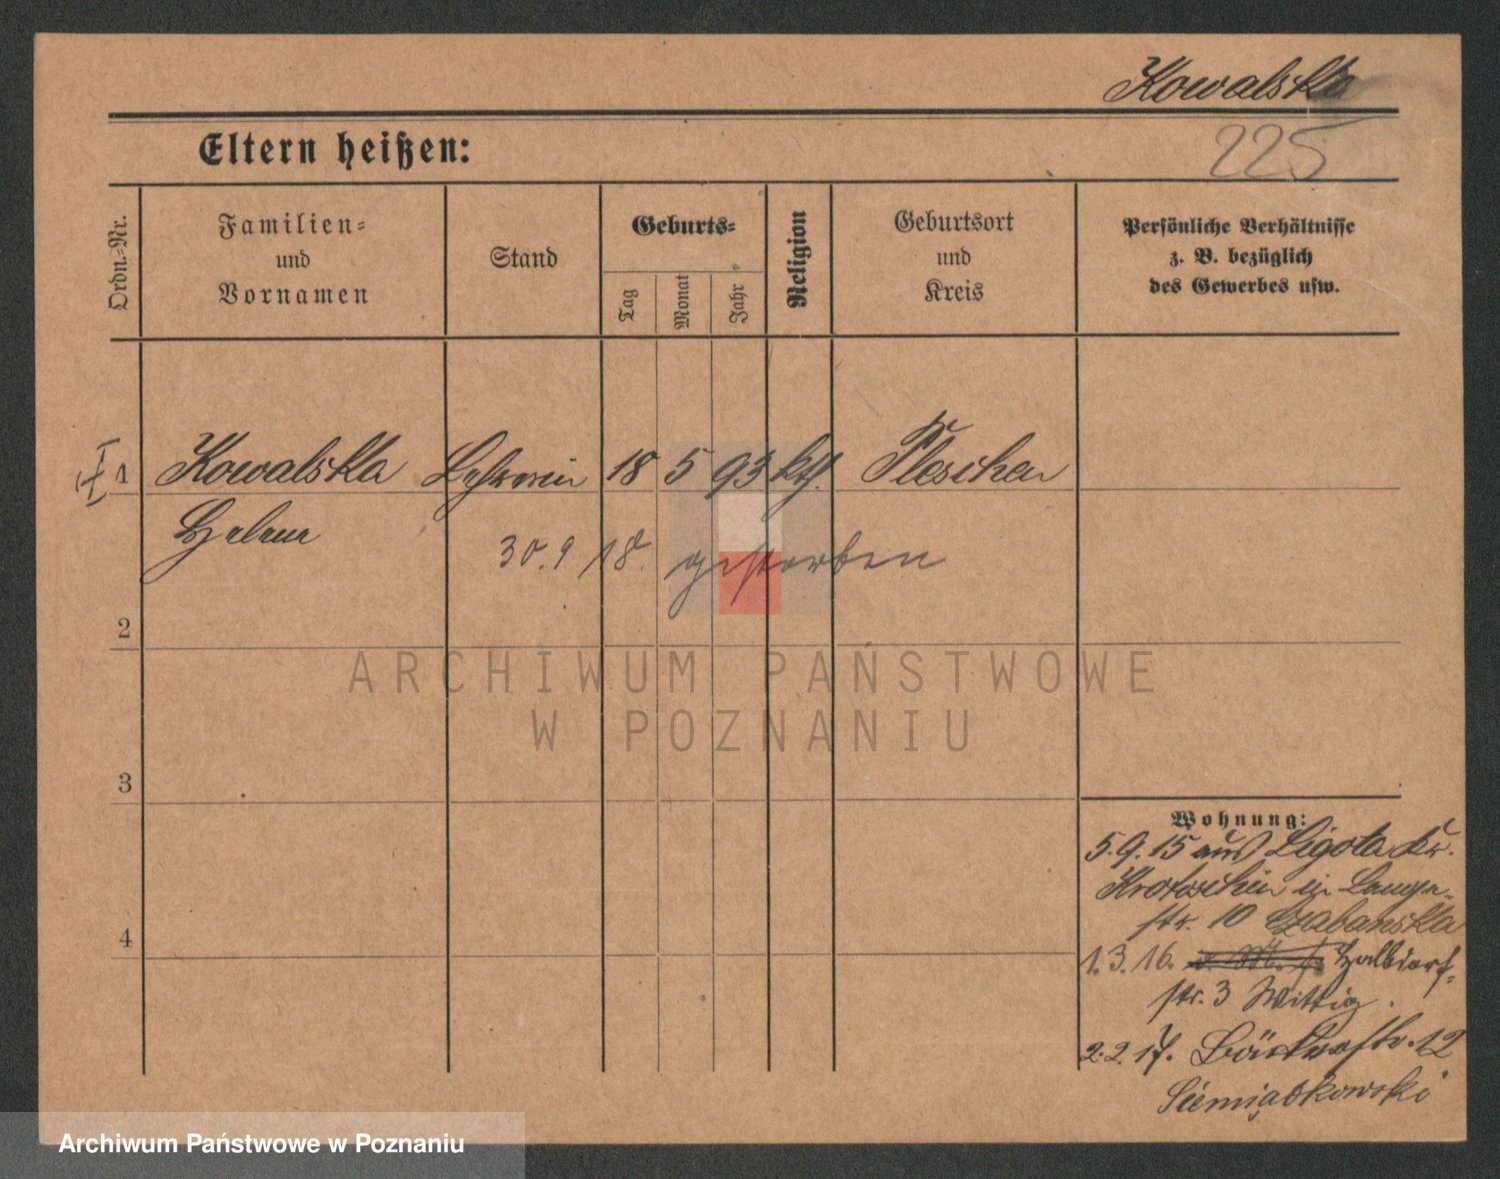 Kowalska
225
Eltern heißen:
Ordn.=Nr.
Familien=
und
Vornamen
Stand
Geburts=
Tag
Monat
Jahr
Religion
Geburtsort
und
Kreis
Persönliche Verhältnisse
z. B. bezüglich
des Gewerbes usw.
1 Kowalska Lehrerin 18 5 93 kth. Pleschen
Helene
30.9.18. gestorben
2
3
4
ARCHIWUM PAŃSTWOWE
W POZNANIU
Wohnung:
5.9.15 aus Ligota Kr.
Krotoschin in Lange-
str. 10
1.3.16. Halbdorf-
str. 3 Wittig.
2.2.17. Bäckerstr. 12
Siemiątkowski
Archiwum Państwowe w Poznaniu